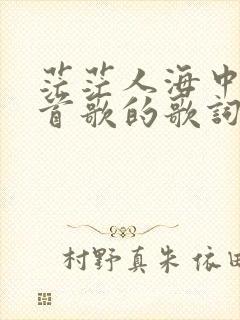 茫茫人海中
首歌的歌词
村野真朱 依田